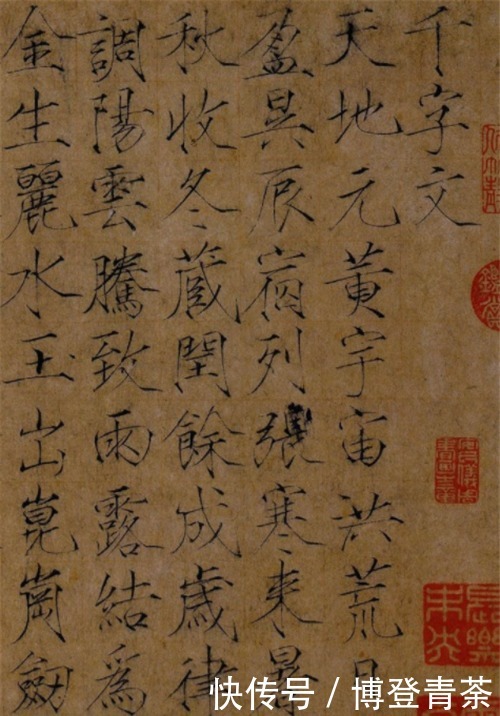 千字文
天地元黄宇宙洪荒日
盈昃辰宿列張寒来暑
秋收冬蔵閏餘成歳律
調陽雲騰致雨露結爲
金生麗水玉出崑崗劔
快传号 / 博登青茶